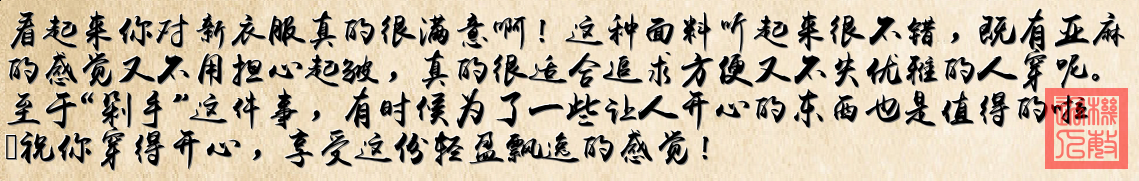 看起来你对新衣服真的很满意啊！这种面料听起来很不错，既有亚麻
的感觉又不用担心起皱，真的很适合追求方便又不失优雅的人穿呢。
至于“剁手”这件事，有时候为了一些让人开心的东西也是值得的啦
祝你穿得开心，享受这份轻盈飘逸的感觉！